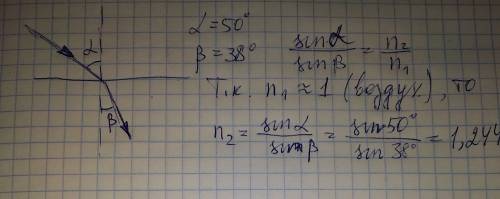 α = 50°
β = 38°
sinα / sinβ = n₂ / n₁
Т.к. n₁ ≈ 1 (воздух), то
n₂ = sinα / sinβ = sin50° / sin38° = 1,244
α
β